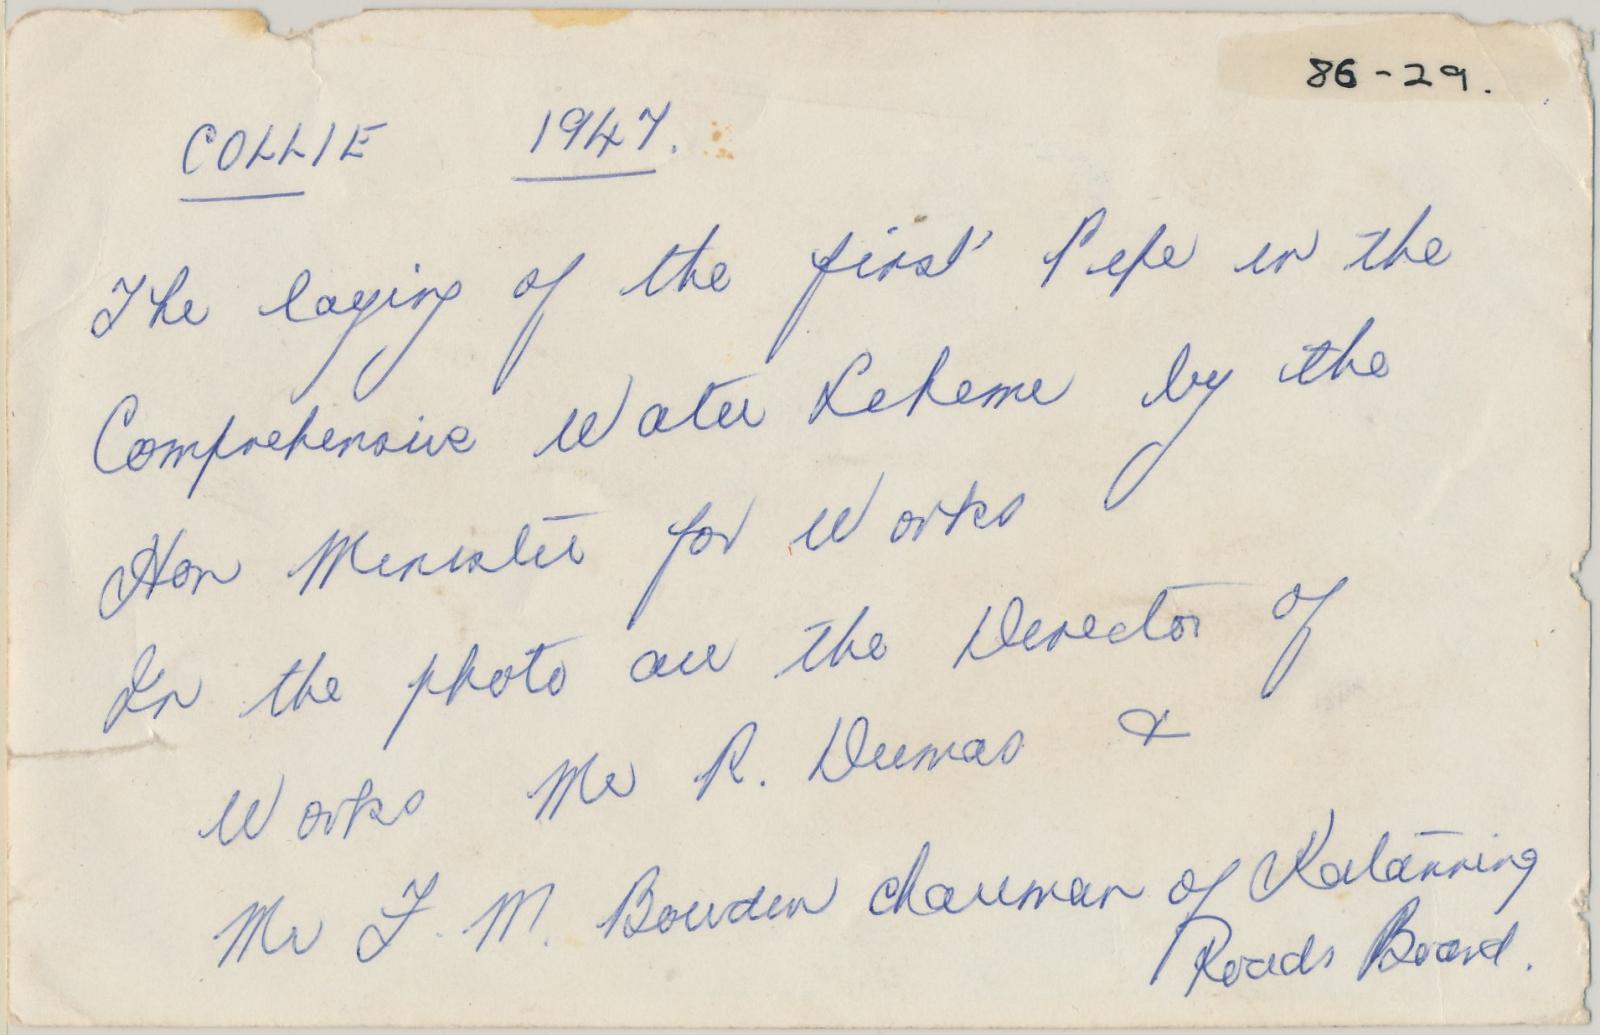 86-29.
COLLIE 1947.
The laying of the first Pipe in the
Comprehensive Water Scheme by the
Hon Minister for Works
In the photo are the Director of
Works Mr R. Dumas &
Mr F. M. Bowden chairman of Katanning
Roads Board.